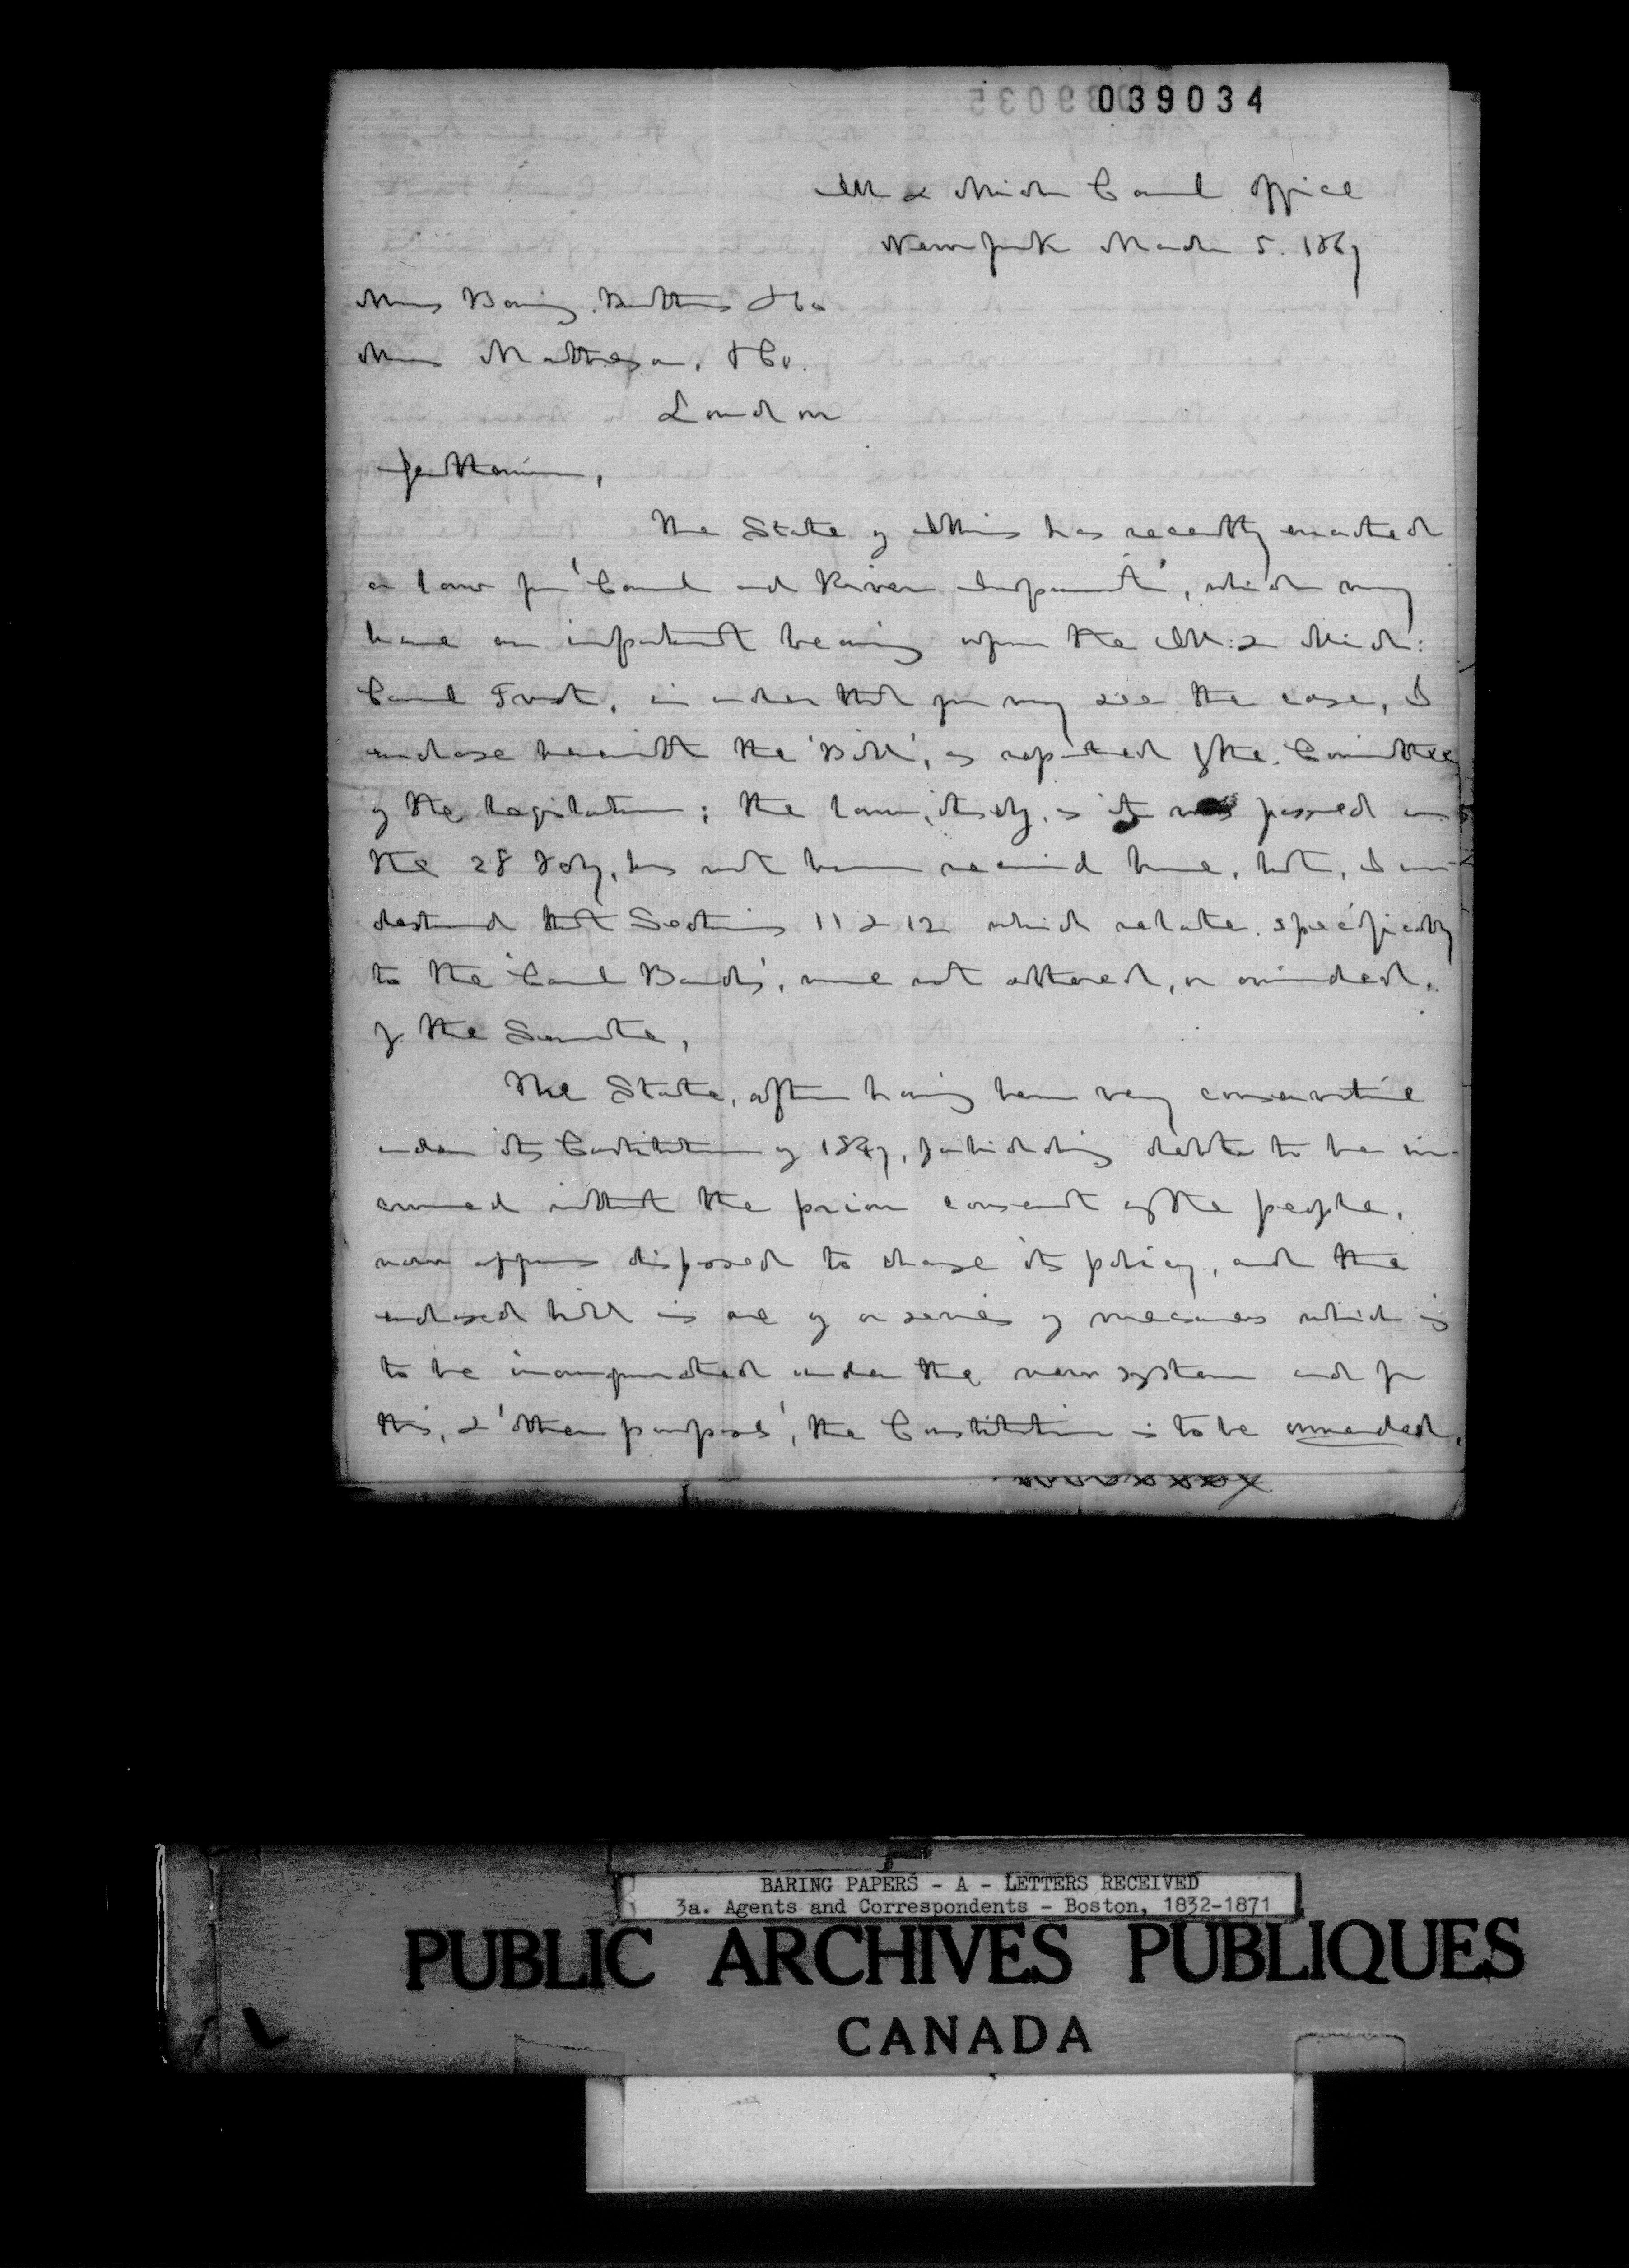 039034
Ill & Mich Canal Office
New York March 5. 1867
Mess Baring, Brothers & Co
Mess Matheson, & Co.
London
Gentlemen,
The State of Illinois has recently enacted
a law for 'Canal and River Improvemt', which may
have an important bearing upon the Ill: & Mich:
Canal Trust, in order that you may see the case, I
enclose herewith the 'Bill', as reported by the Committee
of the Legislature; the law, itself, as it was passed on
the 28 Feby, has not been received here, but, I un-
derstand that Sections 11 & 12 which relate specifically
to the 'Canal Bonds', were not altered, or amended,
by the Senate,
The State, after having been very conservative
under its Constitution of 1847, forbidding debts to be in-
curred without the prior consent of the people,
now appears disposed to change its policy, and the
enclosed bill is one of a series of measures which is
to be inaugurated under the new system and for
this, & 'other purposes', the Constitution is to be amended,
BARING PAPERS - A - LETTERS RECEIVED
3a. Agents and Correspondents - Boston, 1832-1871
PUBLIC ARCHIVES PUBLIQUES
CANADA